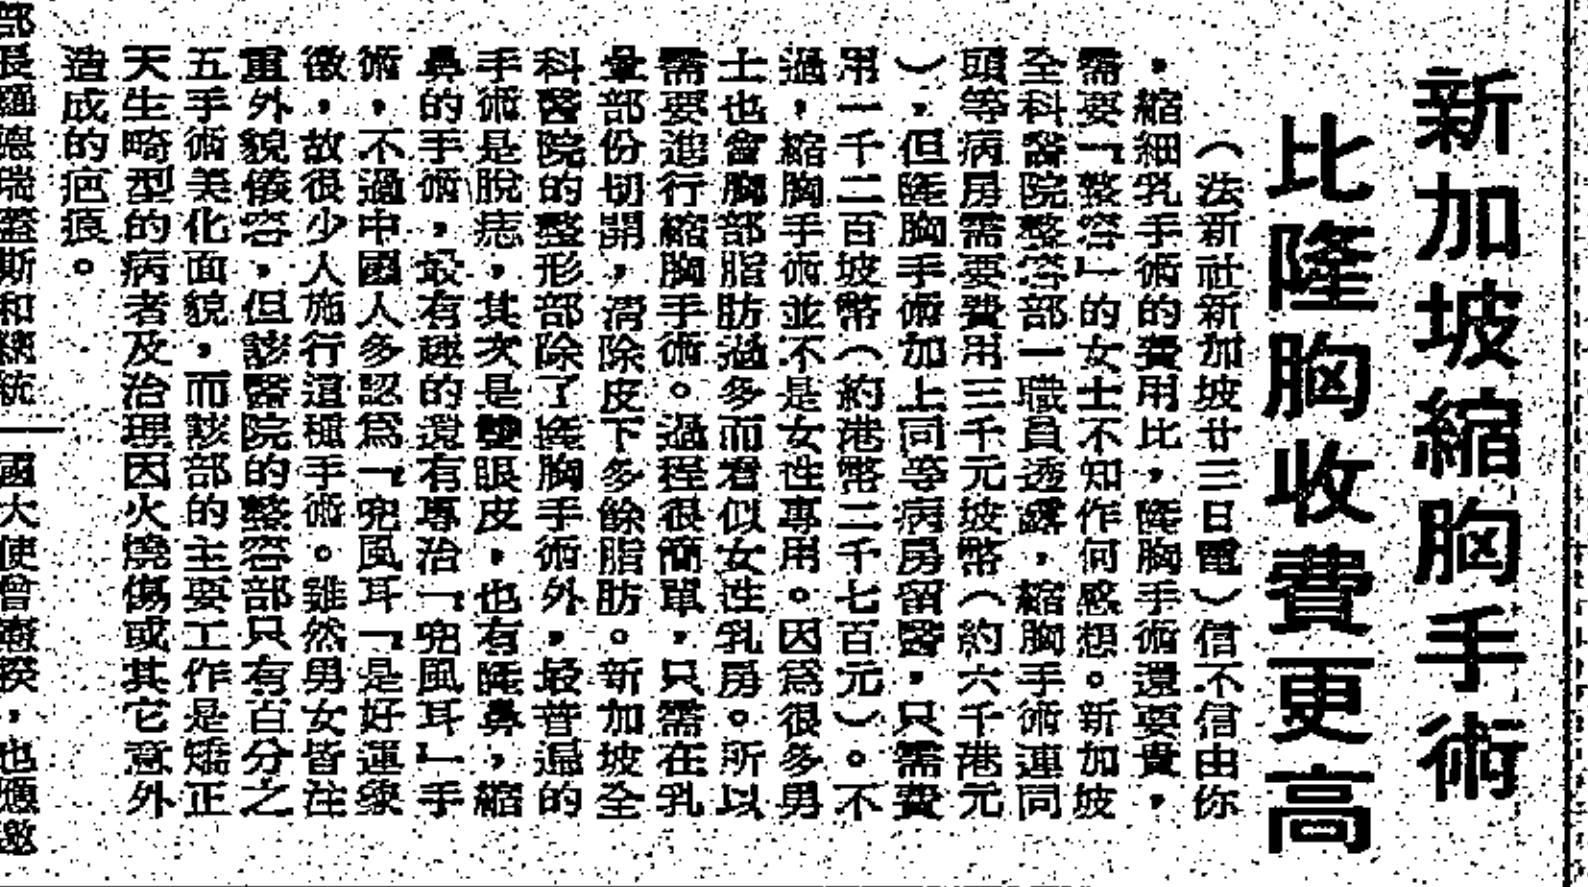 新加坡縮胸手術
比隆胸收費更高
（法新社新加坡廿三日電）信不信由你
，縮細乳手術的費用比，隆胸手術還要貴，
需要「整容」的女士不知作何感想。新加坡
全科醫院整容部一職員透露，縮胸手術連同
頭等病房需要費用三千元坡幣（約六千港元
），但隆胸手術加上同等病房留醫，只需費
用一千二百坡幣（約港幣二千七百元）。不
過，縮胸手術並不是女性專用。因爲很多男
士也會胸部脂肪過多而看似女性乳房。所以
需要進行縮胸手術。過程很簡單，只需在乳
暈部份切開，清除皮下多餘脂肪。新加坡全
科醫院的整形部除了隆胸手術外，最普遍的
手術是脫痣，其次是雙眼皮，也有隆鼻，縮
鼻的手術，最有趣的還有專治「兜風耳」手
術，不過中國人多認爲「兜風耳「是好運象
徵，故很少人施行這種手術。雖然男女皆注
重外貌儀容，但該醫院的整容部只有百分之
五手術美化面貌，而該部的主要工作是矯正
天生畸型的病者及治理因火燒傷或其它意外
造成的疤痕。
部長 瑞蓋斯和總統
國大使曾 ，也應邀